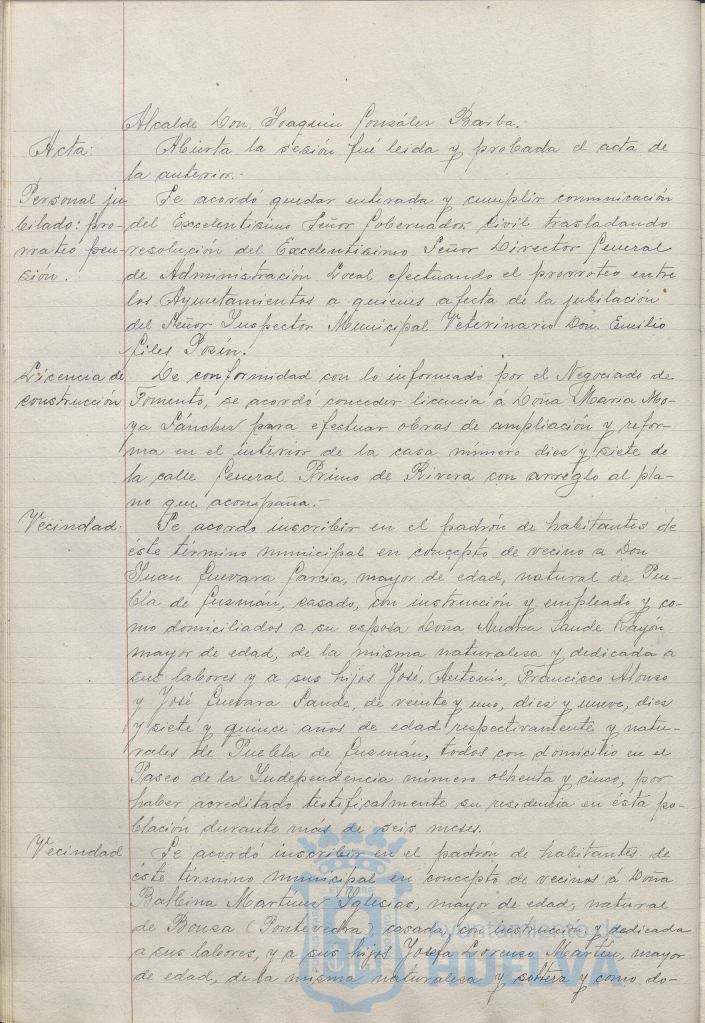 Alcalde Don Joaquín González Barba.
Acta:
Abierta la sesión fué leida y probada el acta de
la anterior.-
Personal ju
bilado: pro-
rrateo pen-
sión.
Se acordó quedar enterada y cumplir comunicación
del Excelentisimo Señor Gobernador Civil trasladando
resolución del Excelentisimo Señor Director General
de Administración Local efectuando el prorroteo entre
los Ayuntamientos a quienes afecta de la jubilación
del Señor Inspector Municipal Veterinario Don Emilio
Giles
Licencia de
construcción
De conformidad con lo informado por el Negociado de
Fomento, se acordó conceder licencia á Doña Maria Mo-
ya Sánchez para efectuar obras de ampliación y refor-
ma en el interior de la casa número diez y siete de
la calle General Primo de Rivera con arreglo al pla-
no que acompaña.-
Vecindad.
Se acordo inscribir en el padrón de habitantes de
éste término municipal en concepto de vecino a Don
Juan Guevara Garcia, mayor de edad, natural de Pue-
bla de Guzmán, casado, con instrucción y empleado y co-
mo domiciliados a su esposa Doña Andrea Sande Rayón
mayor de edad, de la misma naturalesa y dedicada a
sus labores y a sus hijos José, Antonio, Francisco Alonso
y José Guevara Sande, de veinte y uno, diez y nueve, diez
y siete y quince años de edad respectivamente y natu-
rales de Puebla de Guzmán, todos con domicilio en el
Paseo de la Independencia número olhenta y cinco, por
haber acreditado testificalmente su residencia en ésta po-
blación durante más de seis meses.
Vecindad
Se acordó inscribir en el padrón de habitantes de
éste término municipal en concepto de vecinos á Doña
Balbina Martínez Yglesias, mayor de edad, natural
de Bouza (Pontevedra) casada, con instrucción y dedicada
a sus labores, y a sus hijos Josefa Lorenzo Martínez, mayor
de edad, de la misma naturalesa y soltera y como do-
Ayuntamiento de
HUELVA